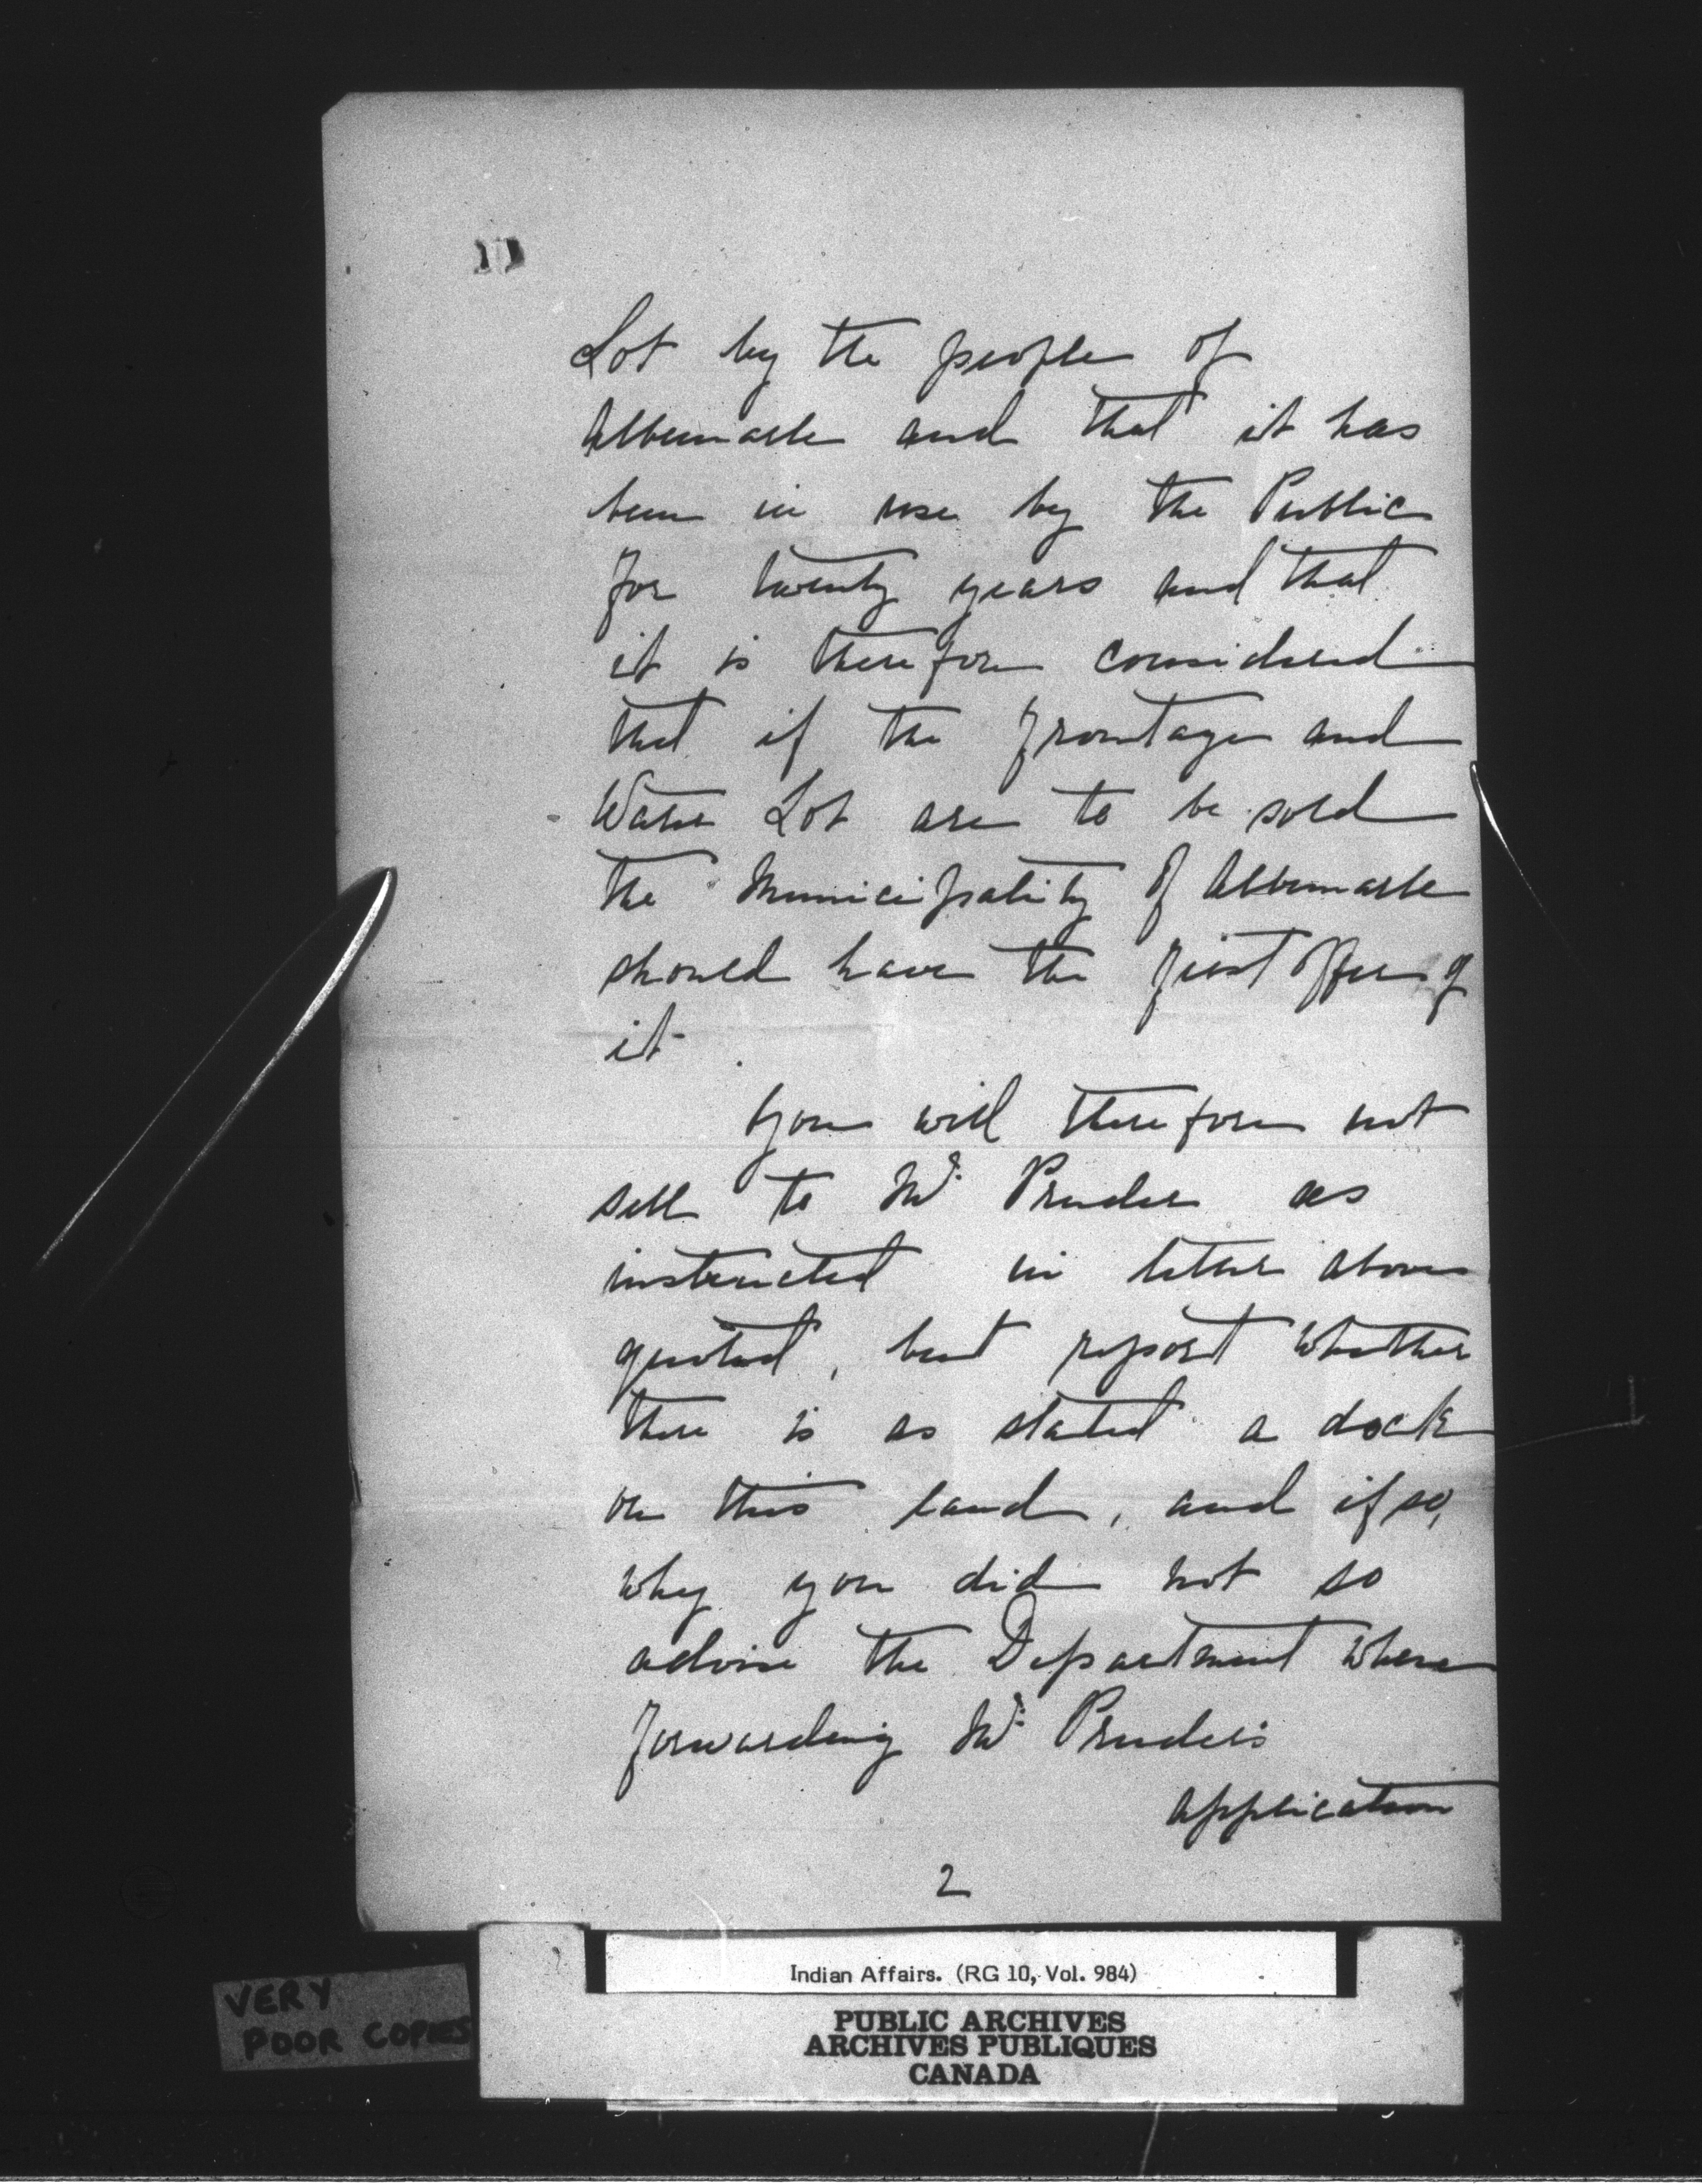 Lot by the people of
Albemarle and that it has
been in use by the Public
for twenty years and that
it is therefore considered
that if the frontage and
Water Lot are to be sold
the Municipality of Albemarle
should have the first offer of
it.
You will therefore not
sell to Mr. Pruder as
instructed in letter above
quoted, but report whether
there is as stated a dock
on this land, and if so,
why you did not so
advise the Department when
forwarding Mr. Pruder's
application
2
Indian Affairs. (RG 10, Vol. 984)
PUBLIC ARCHIVES
ARCHIVES PUBLIQUES
CANADA
VERY
POOR COPIES